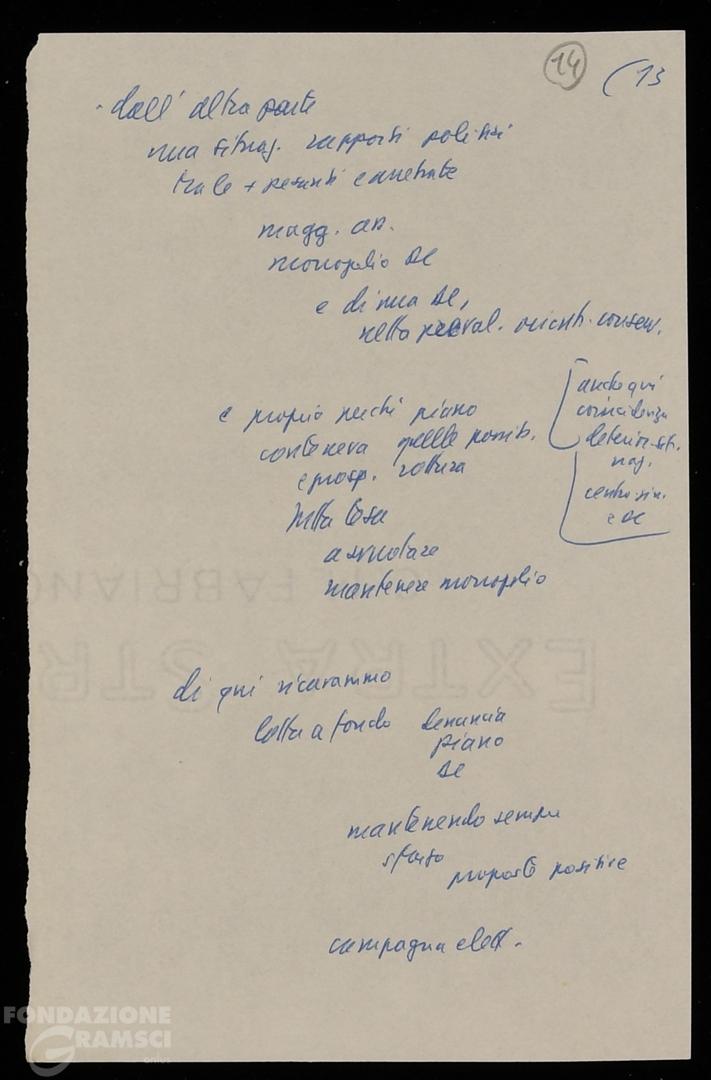 14 (13
- dall' altra parte
una situaz. rapporti politici
tra le + pesanti e arretrate
magg. ass.
monopolio DC
e di una DC,
nella preval. orient. conserv.
e proprio perché piano
conteneva quelle possib.
e prosp. rottura
lotta tesa
a svuotare
mantenere monopolio
anche qui
coincidenza
deterior. sit.
naz.
centro sin.
e DC
di qui ricavammo
lotta a fondo denuncia
piano
DC
mantenendo sempre
sforzo
proposte positive
campagna elett.
EXTRA STR
FABRIANO
FONDAZIONE
GRAMSCI
onlus